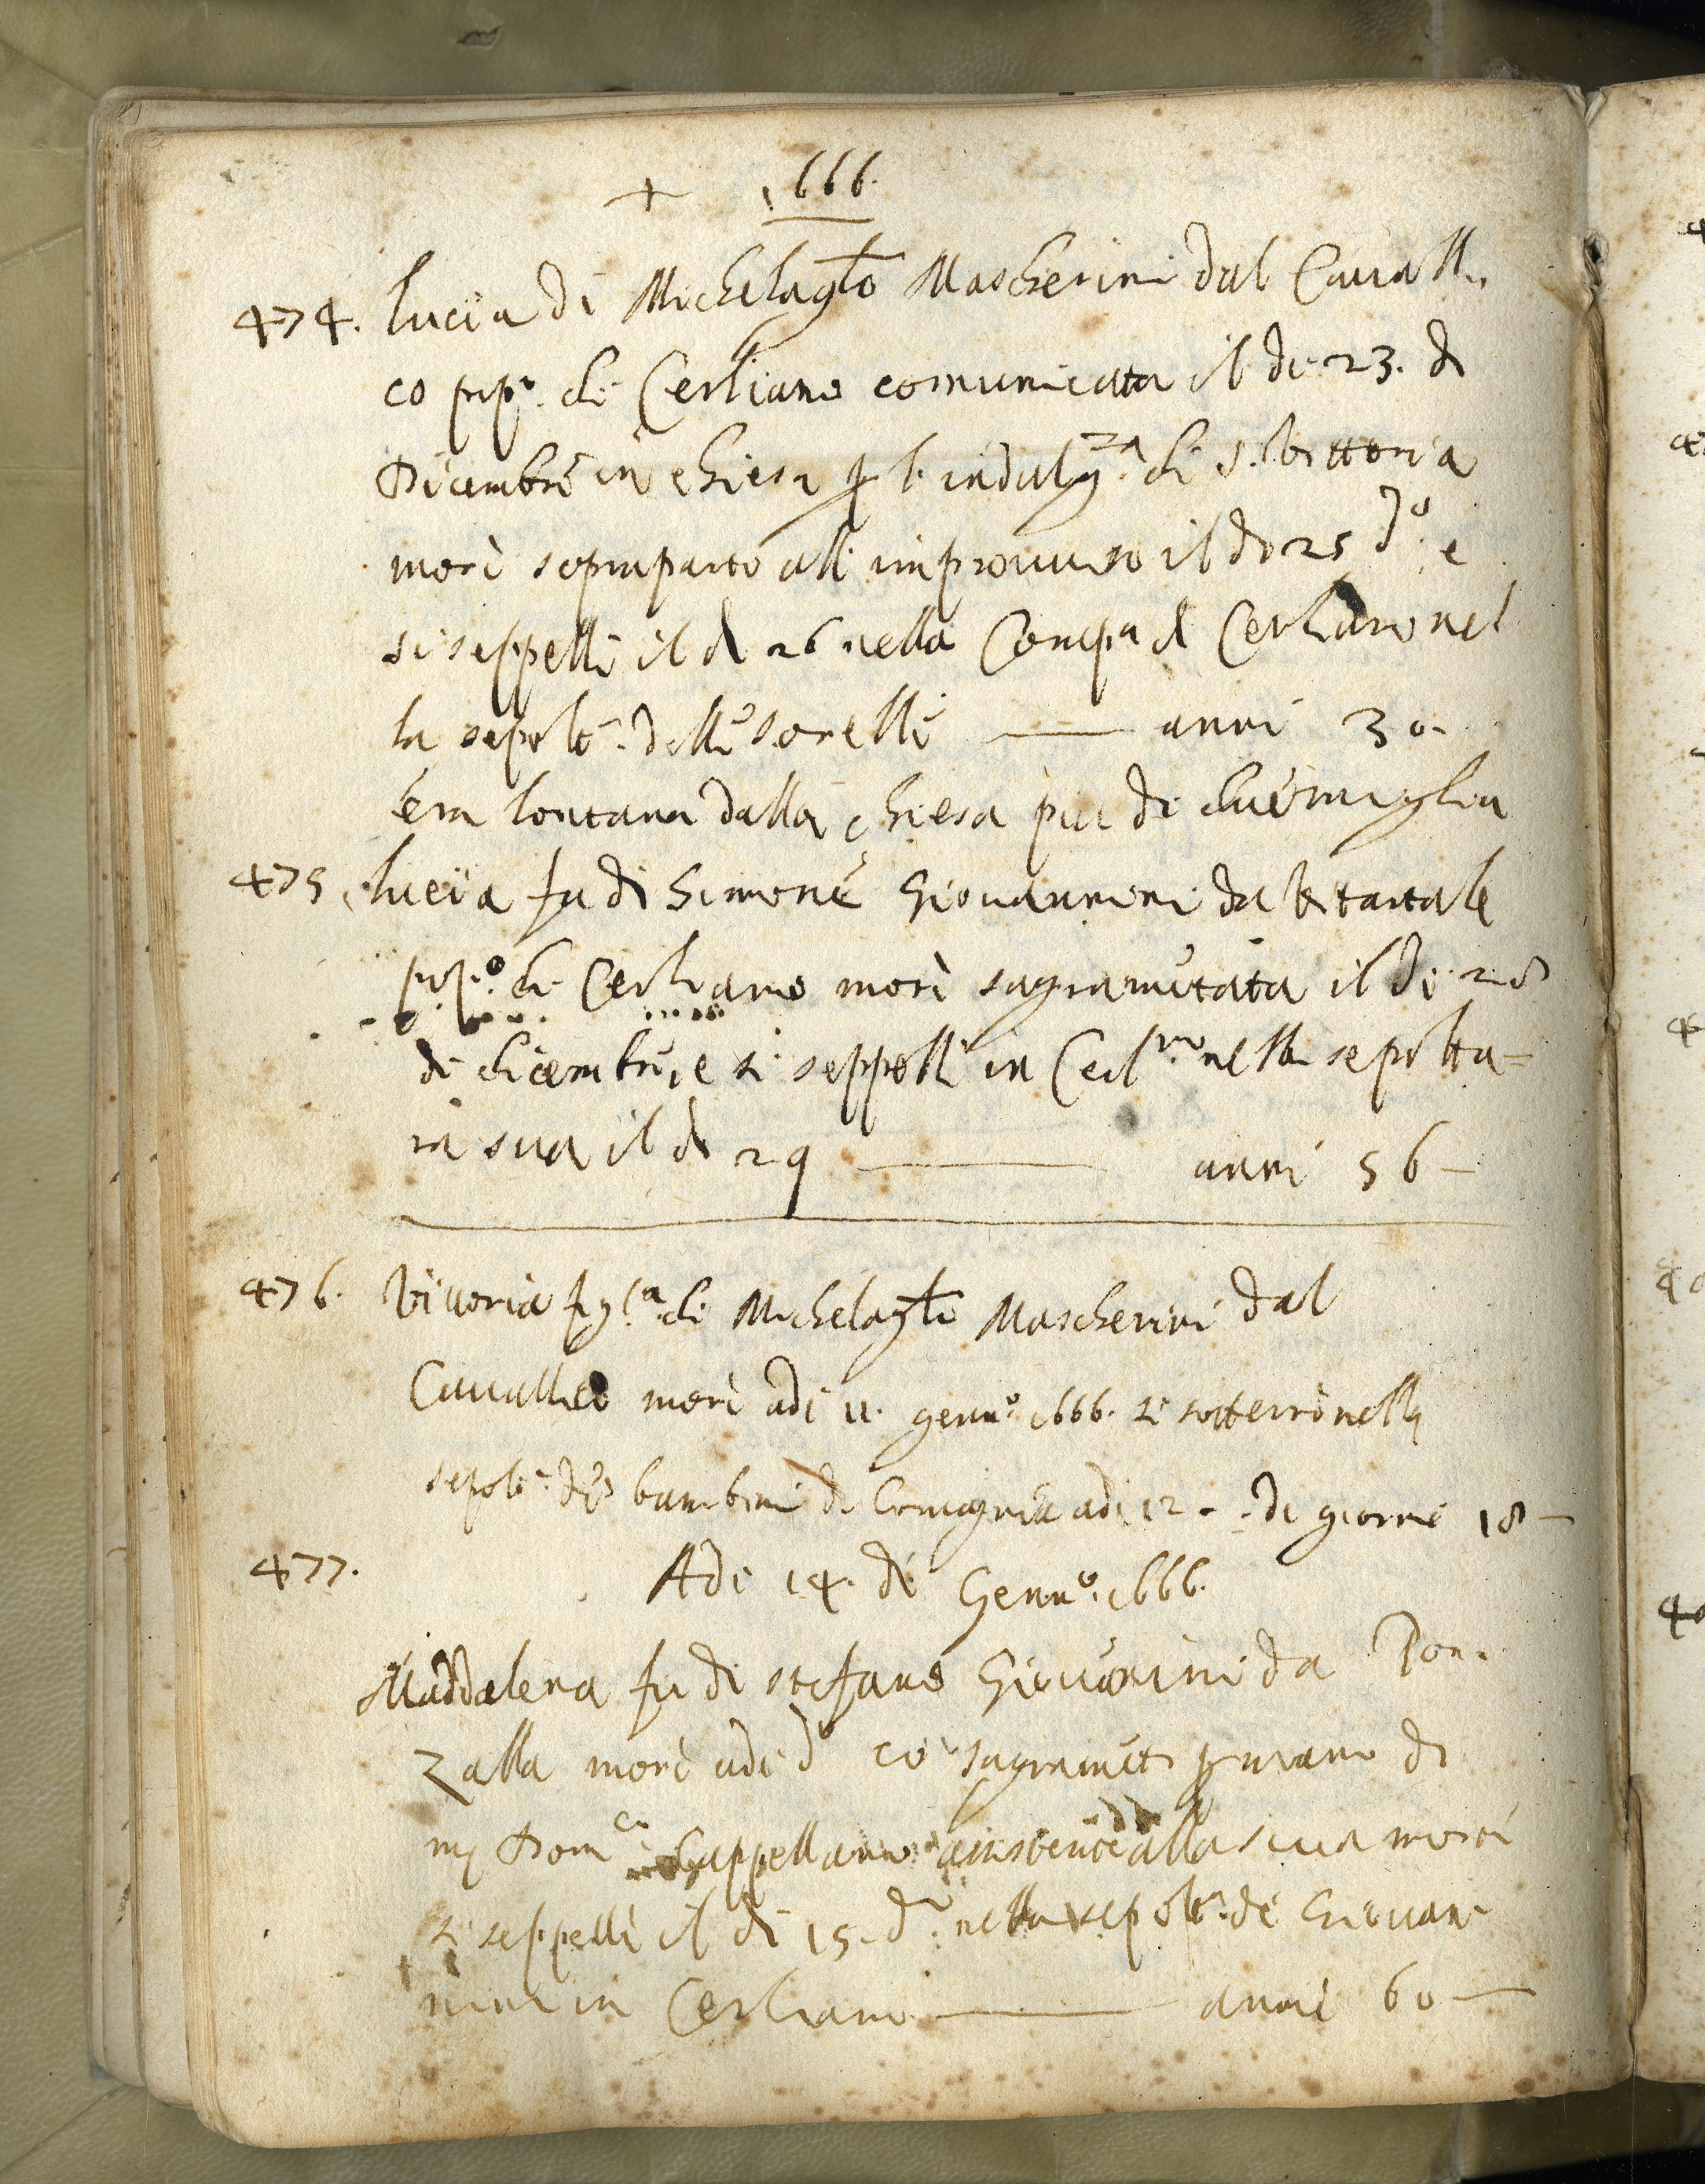 + 1666.
474. Lucia di Michelag.lo Mascherini dal Cavalli
co pop.o di Cerliano comunicata il di 23. di
Dicembre in chiesa p l'indulg.za di S. Vittoria
morì sopraparto all'improuuiso il di 25 d.o e
si seppellì il di 26 nella Comp.a di Cerliano nel
la sepolt.a delle sorelle — anni 30-
era lontana dalla chiesa piu di due miglia
475. Lucia fu di Simone Giouannini da Vitartale
pop.o di Cerliano morì sagramẽtata il di 28
di dicembre, e si seppellì in Cerl.no nella sepoltu=
ra sua il di 29 — anni 56-
476. Vittoria figl.a di Michelag.lo Mascherini dal
Cauallico morì adi 11. genn.o 1666. si sotterrò nella
sepolt.a de bambini di adi 12 - di giorni 18-
477. Adi 14. di Genn.o 1666.
Maddalena fu di Stefano Giouãnini da Pon.
zalla morì adi d.o cõ sagramẽti p mano di
m Dom.co Cappellano alla sua morte
si seppellì il di 15. d.o nella sepolt.a de Giouan
nini in Cerliano — anni 60 —
4
4
4